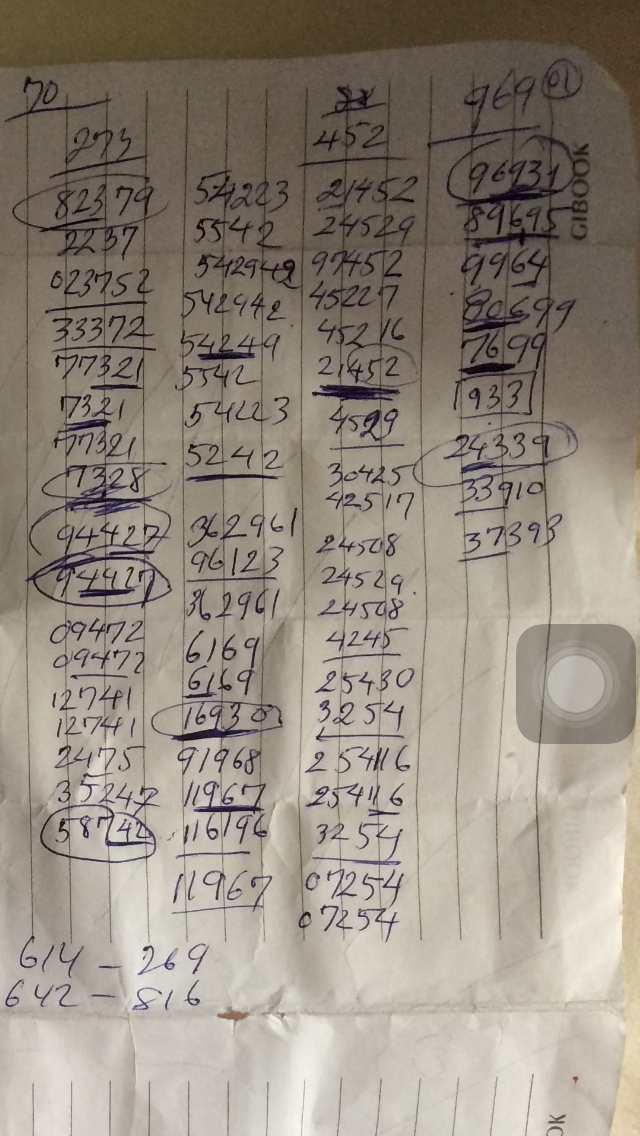 70
273
82379
2237
023752
33372
77321
7321
77321
7328
94427
94427
09472
09472
12741
12741
2475
35247
58742
54223
5542
542942
542942
54249
5542
54223
5242
362961
96123
362961
6169
6169
16930
91968
11967
116196
11967
452
21452
24529
97452
45227
45216
21452
4529
30425
42517
24508
24529
24508
4245
25430
3254
254116
254116
3254
07254
07254
969
96931
89695
9964
80699
7699
933
24339
33910
37393
GIBOOK
614 - 269
642 - 816